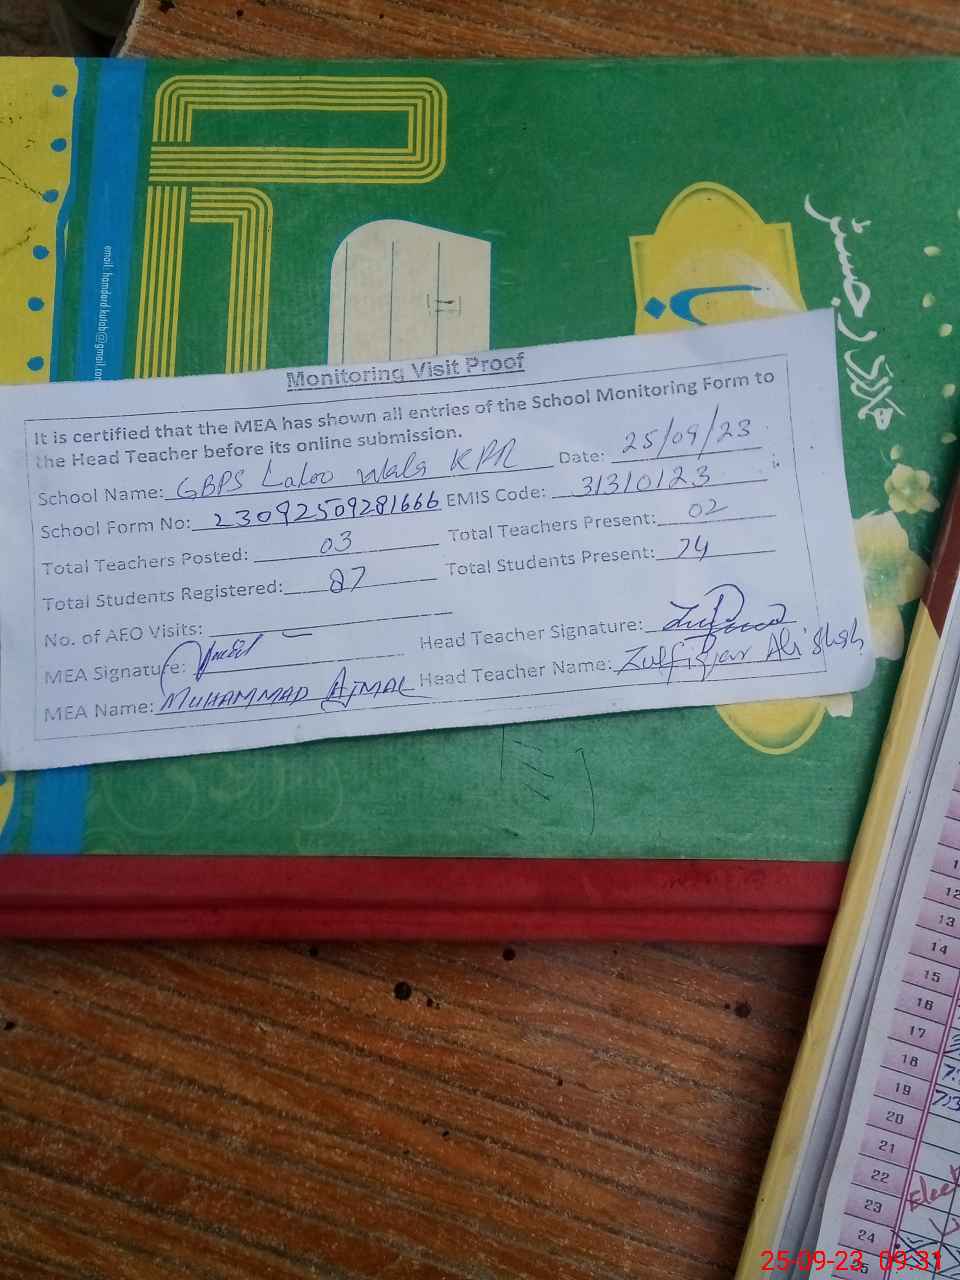 email: hamdard.kutab@gmail.com
Monitoring Visit Proof
It is certified that the MEA has shown all entries of the School Monitoring Form to
the Head Teacher before its online submission.
School Name: GBPS Laloo Wala KPR Date: 25/09/23
School Form No: 23092509281666 EMIS Code: 31310123
Total Teachers Posted: 03 Total Teachers Present: 02
Total Students Registered: 87 Total Students Present: 74
No. of AEO Visits: –
MEA Signature: Head Teacher Signature:
MEA Name: MUHAMMAD AJMAL Head Teacher Name: Zulfiqar Ali Shah
رجسٹر
12
13
14
15
16
17
18
19
20
21
22
23
24
25-09-23 09:31